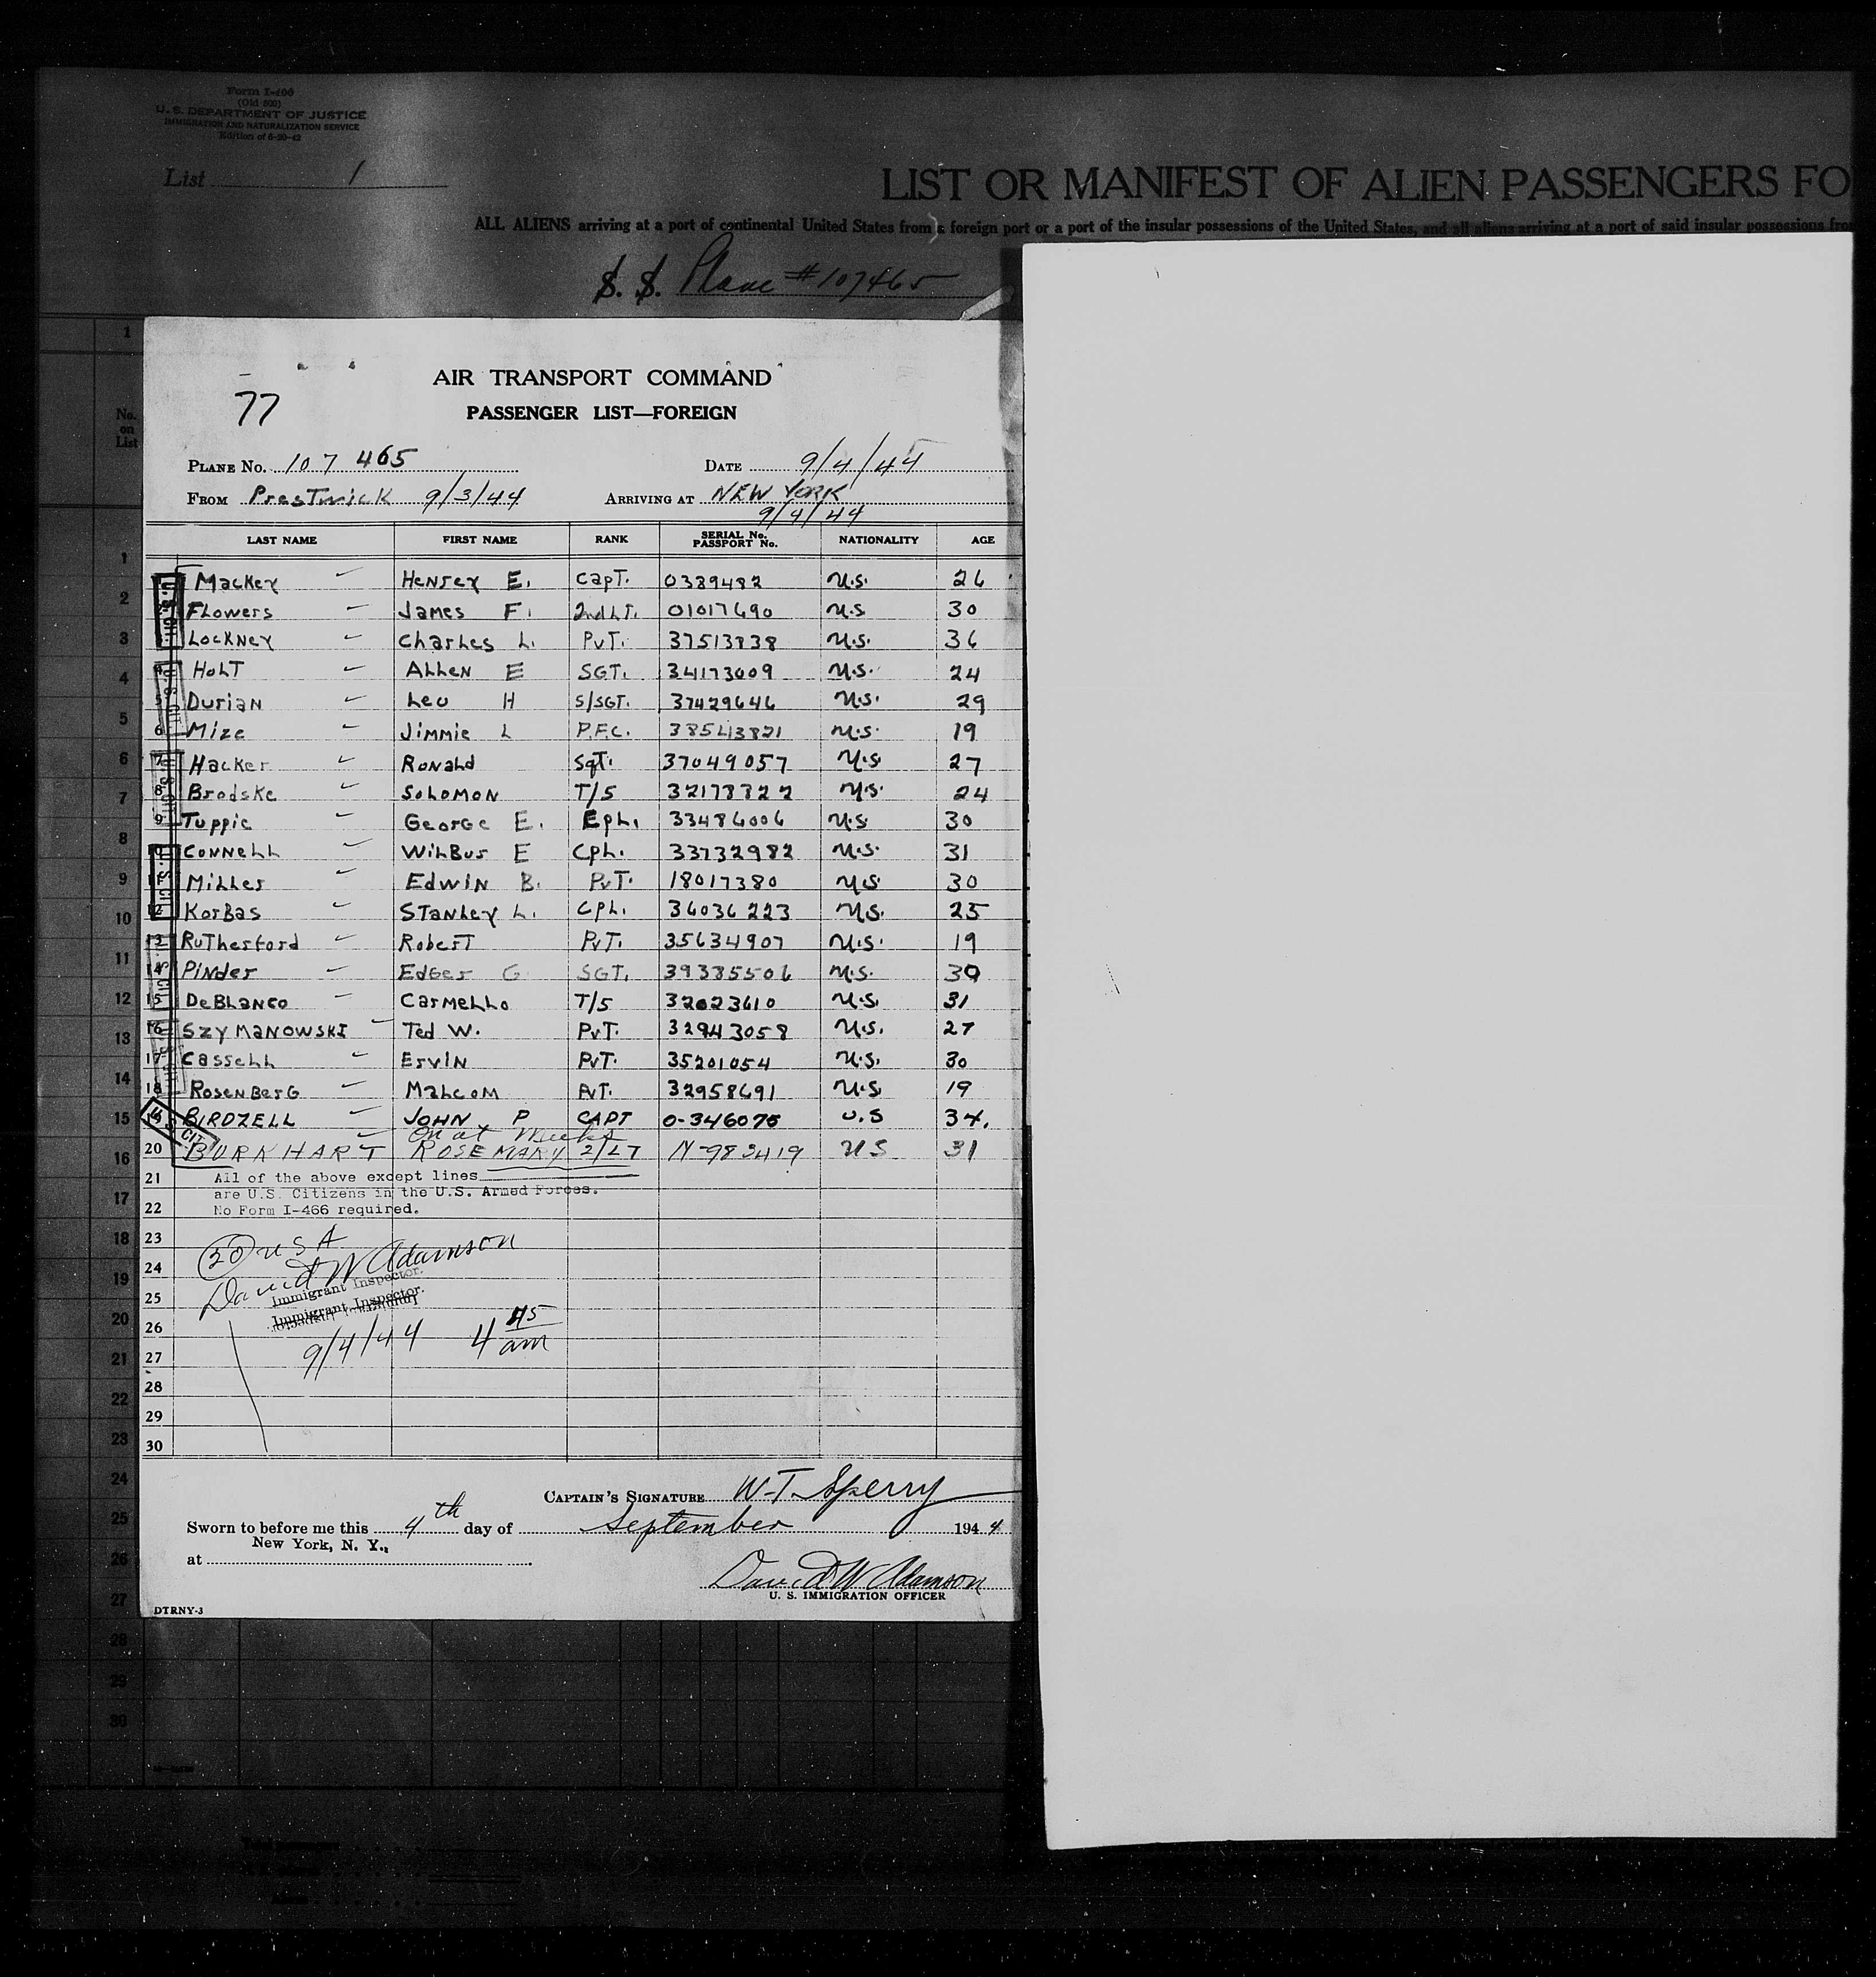 Form I-400
(Old 500)
U. S. DEPARTMENT OF JUSTICE
IMMIGRATION AND NATURALIZATION SERVICE
Edition of 6-20-42
List 1
LIST OR MANIFEST OF ALIEN PASSENGERS FO
ALL ALIENS arriving at a port of continental United States from a foreign port or a port of the insular possessions of the United States, and all aliens arriving at a port of said insular possessions fro
S. S. Plane #107465
No. on List
AIR TRANSPORT COMMAND
77
PASSENGER LIST—FOREIGN
PLANE No. 107 465 DATE 9/4/44
FROM Prestwick 9/3/44 ARRIVING AT NEW YORK
9/4/44
LAST NAME FIRST NAME RANK SERIAL No. PASSPORT No. NATIONALITY AGE
1 Mackey Henrey E. Capt. 0389482 U.S. 26
2 Flowers James F. 2nd LT. 01017690 U.S 30
3 Lockney Charles L. PvT. 37513838 U.S. 36
4 Holt Allen E SGT. 34173009 U.S. 24
5 Durian Leo H S/SGT. 37429646 U.S. 29
6 Mize Jimmie L P.F.C. 38543821 U.S. 19
7 Hacker Ronald SgT. 37049057 U.S. 27
8 Brodske Solomon T/5 32173322 U.S. 24
9 Tuppic George E. Cpl. 33486006 U.S 30
10 Connell Wilbur E Cpl. 33732982 U.S. 31
11 Miller Edwin B. PvT. 18017380 U.S 30
12 Korbas Stanley L. Cpl. 36036223 U.S. 25
13 Rutherford Robert PvT. 35634907 U.S. 19
14 Pinder Edger G SGT. 39385506 U.S. 30
15 DeBlanco Carmello T/5 32023610 U.S. 31
16 Szymanowski Ted W. PvT. 32943058 U.S. 27
17 Cassell Ervin PvT. 35201054 U.S. 30
18 Rosenberg Malcom PvT. 32958691 U.S 19
19 BIRDZELL JOHN P CAPT 0-346075 U.S 34.
on at Meeks
20 BURKHART ROSEMARY 2/LT N-983419 US 31
21 All of the above except lines
are U.S. Citizens in the U.S. Armed Forces.
22 No Form I-466 required.
23 (20) U S A
24 David W Adamson
25 Immigrant Inspector.
Immigrant Inspector.
26 9/4/44 4 45 am
27
28
29
30
CAPTAIN'S SIGNATURE W-T. Sperry
Sworn to before me this 4th day of September 1944
New York, N. Y.,
at
David W Adamson
U. S. IMMIGRATION OFFICER
DTRNY-3